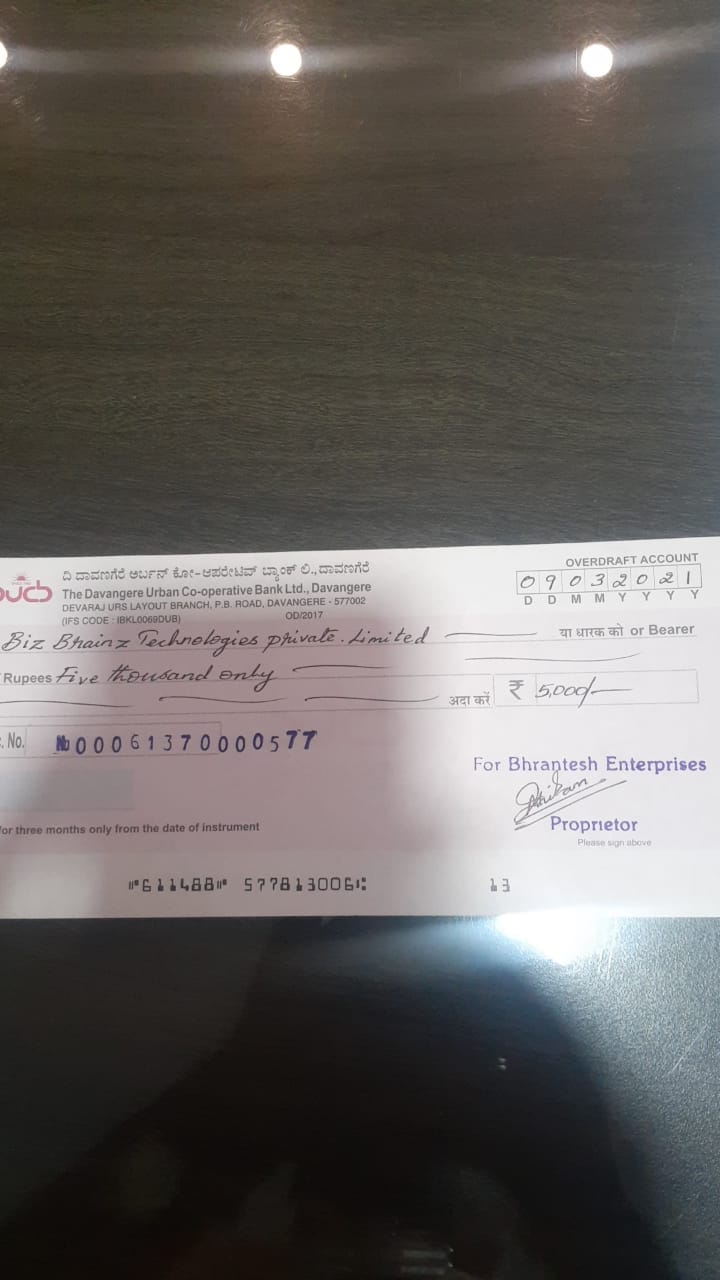 ದಿ ದಾವಣಗೆರೆ ಅರ್ಬನ್ ಕೋ-ಆಪರೇಟಿವ್ ಬ್ಯಾಂಕ್ ಲಿ., ದಾವಣಗೆರೆ
The Davangere Urban Co-operative Bank Ltd., Davangere
DEVARAJ URS LAYOUT BRANCH, P.B. ROAD, DAVANGERE - 577002
(IFS CODE : IBKL0069DUB) OD/2017
OVERDRAFT ACCOUNT
09032021
D D M M Y Y Y Y
Biz Brainz Technologies private. Limited या धारक को or Bearer
Rupees Five thousand only
अदा करें ₹ 5,000/-
. No. No 00061370000577
For Bhrantesh Enterprises
Proprietor
Please sign above
for three months only from the date of instrument
⑈611488⑈ 577813006⑆ 13